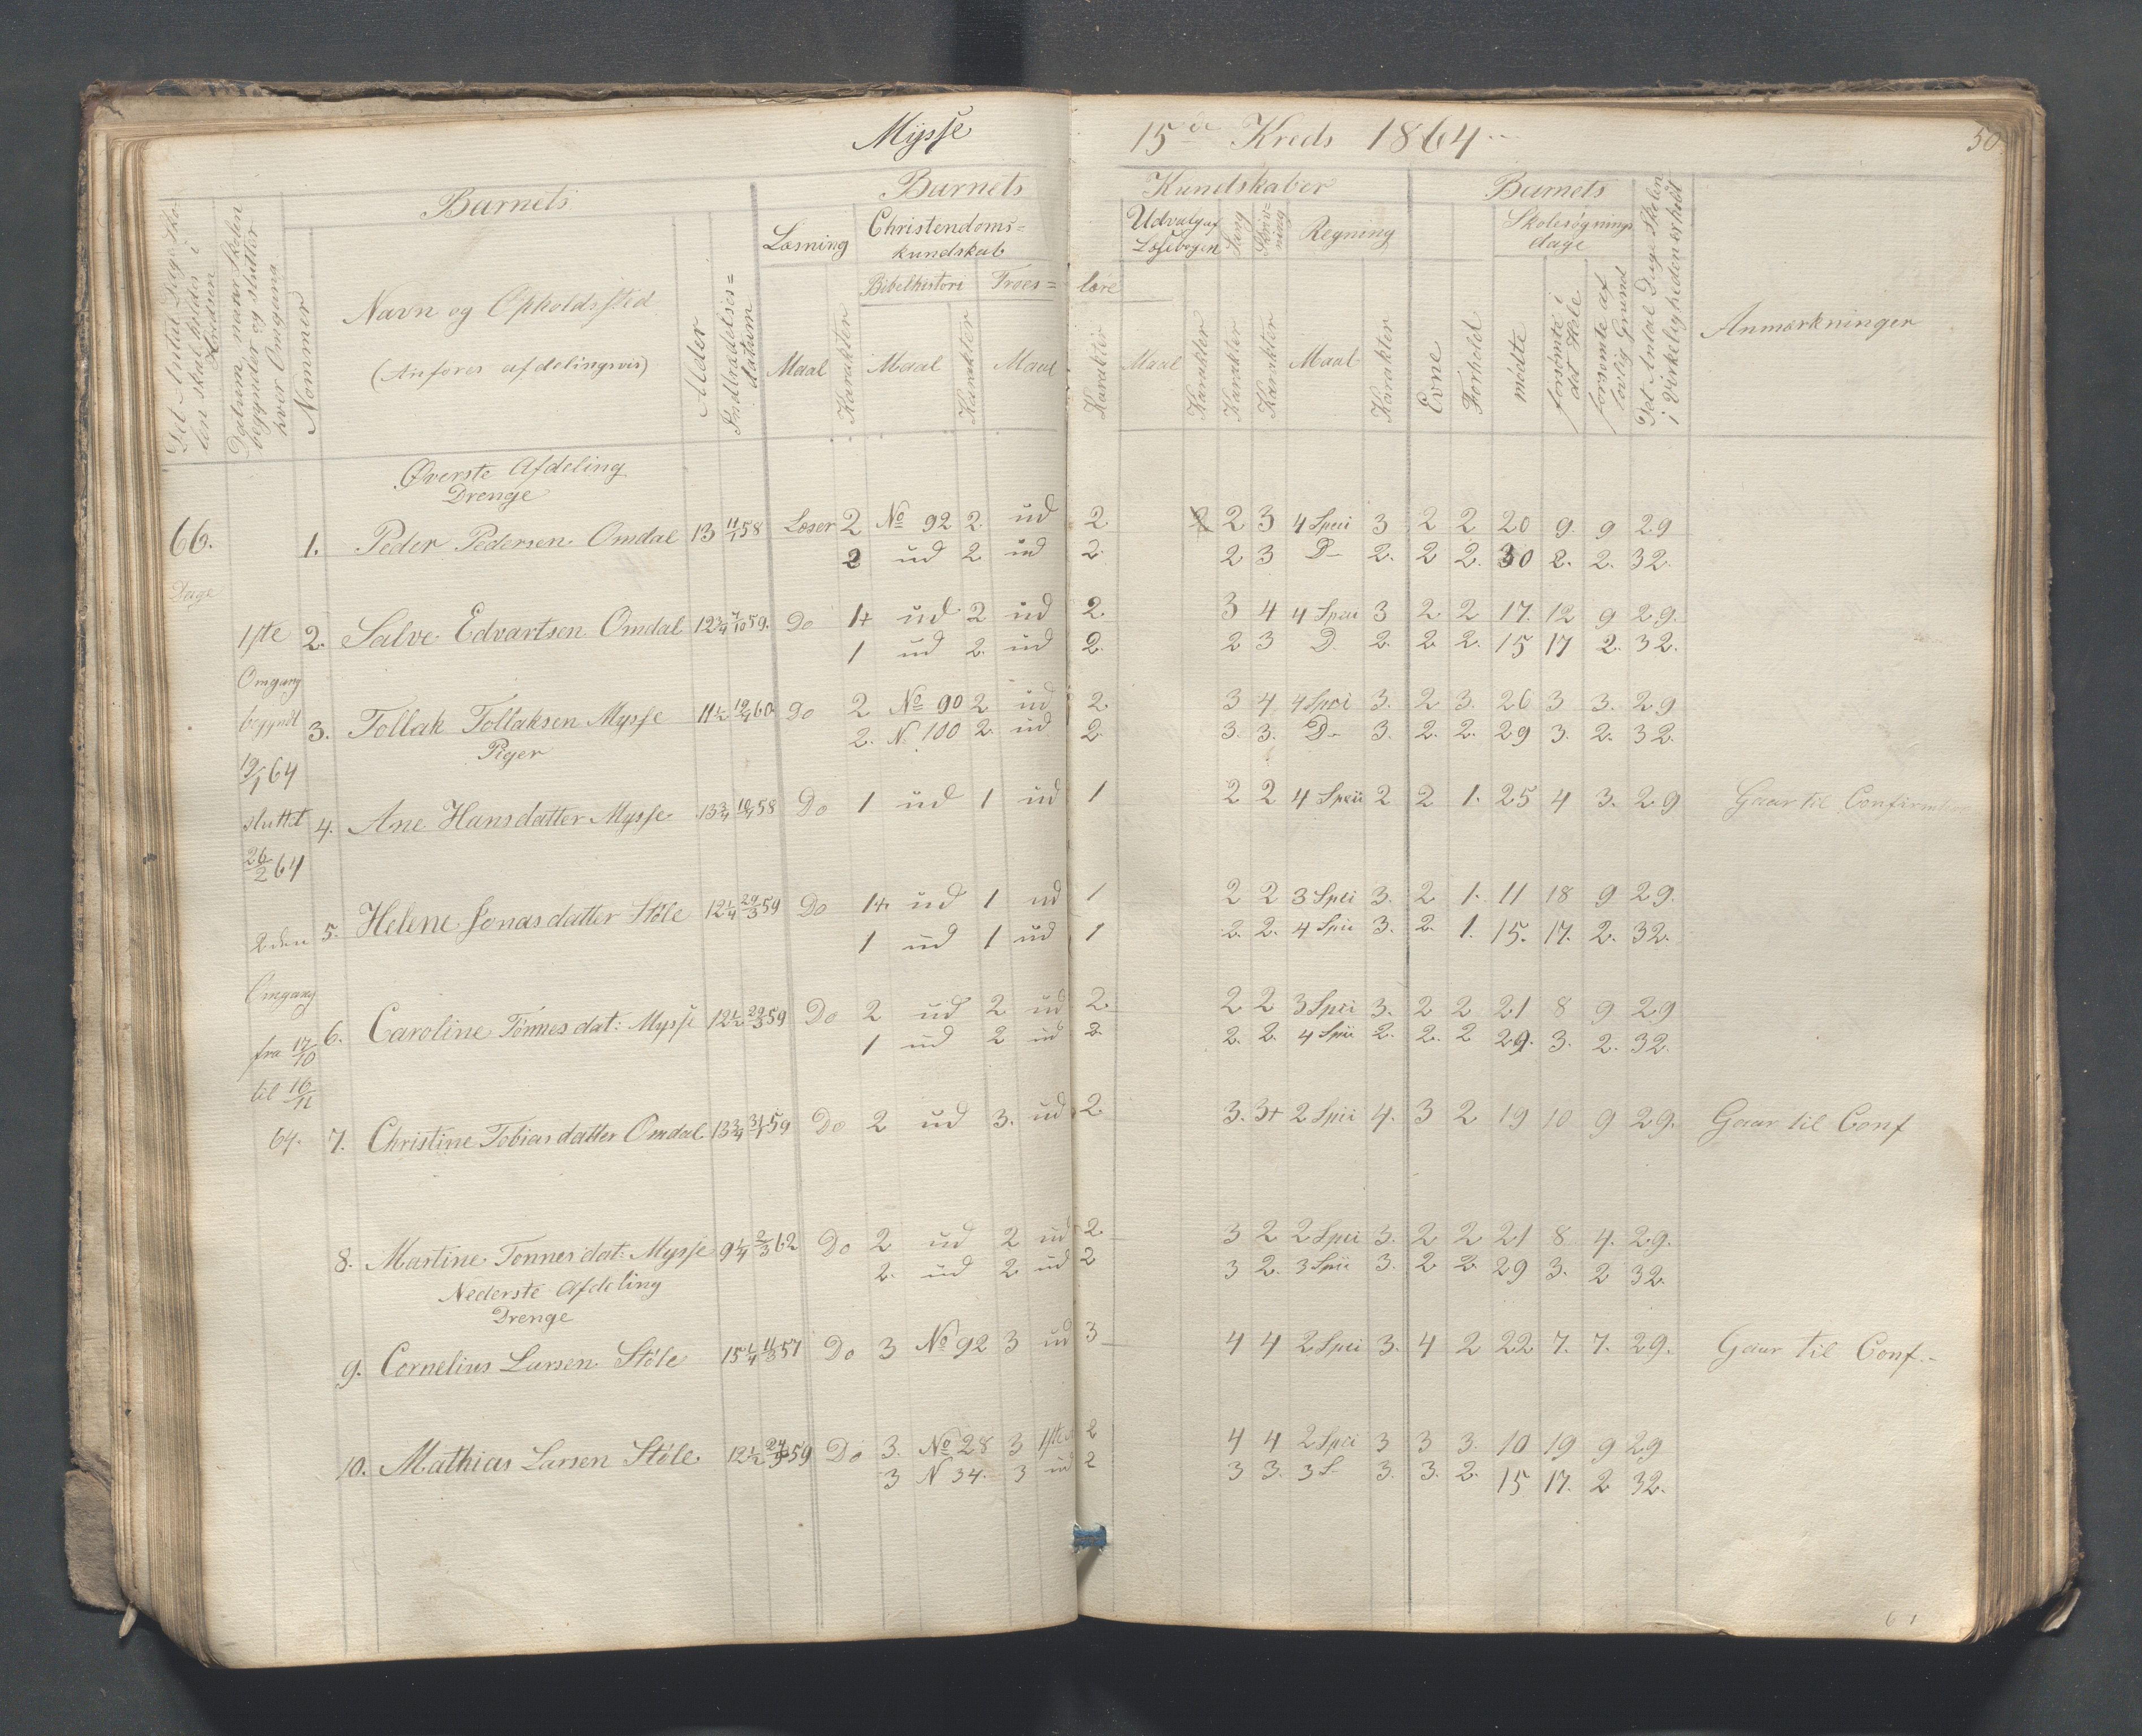 Mysse 15de Kreds 1864 50
Barnets Barnets Kundskaber Barnets
Det Antal Dage Skolen skal holdes i Kredsen
Datum, naar Skolen begynder og slutter hver Omgang
Nommer
Navn og Opholdssted
(Anføres afdelingsvis)
Alder
Indtrædelses=datum
Læsning Christendoms=kundskab Udvalg af Læsebogen Sang Skriv=ning Regning Skolesøgnings dage
Bibelhistori Troes=lære
Maal Karakter Maal Karakter Maal Karakter Maal Karakter Karakter Karakter Maal Karakter
Evne Forhold mødte forsømte i det Hele forsømte af lovlig Grund
Det Antal Dage Skolen i Virkeligheden er holdt
Anmærkninger
Øverste Afdeling
Drenge
66. 1. Peder Pedersen Omdal 13 11/1 58 Læser 2 No 92 2 ud 2 2 3 4 Speci 3 2 2 20 9. 9 29
2 ud 2 ud 2. 2 3 D 2. 2 2. 30 2. 2. 32.
Dage
1ste 2. Salve Edvartsen Omdal 12 3/4 7/10 59. Do 1+ ud 2 ud 2. 3 4 4 Speci 3 2 2 17. 12 9 29.
1 ud 2. ud 2. 2 3 D. 2. 2 2. 15 17 2. 32.
Omgang
begyndt 3. Tollak Tollaksen Mysse 11 1/2 60 Do 2 No 90 2 ud 2. 3 4 4 Speci 3. 2 3. 26 3 3. 29
2. N. 100 2. ud 2. 3. 3. D 3. 2. 2. 29 3. 2. 32.
Piger
19/1 64
sluttet 4. Ane Hansdatter Mysse 13 3/4 58 Do 1 ud 1 ud 1 2 2 4 Speci 2 2 1. 25 4 3. 29 Gaar til
26/2 64
2den 5. Helene Jonasdatter Støle 12 1/4 29/3 59 Do 1+ ud 1 ud 1 2 2 3 Speci 3. 2 1. 11 18 9 29.
1 ud 1 ud 1 2. 2. 4 Speci 3. 2. 1. 15. 17. 2. 32.
Omgang
fra 17/10 6. Caroline Tønnesdat: Mysse 12 1/2 29/3 59 Do 2 ud 2 ud 2. 2 2 3 Speci 3. 2 2 21 8 9 29
1 ud 2 ud 2. 2. 2. 4 Speci 2. 2. 2 29. 3. 2. 32.
til 16/11
64. 7. Christine Tobiasdatter Omdal 13 3/4 31/1 59 Do 2 ud 3. ud 2. 3. 3+ 2 Speci 4. 3 2 19 10 9 29. Gaar til Conf
8. Martine Tønnesdat: Mysse 9 1/4 2/3 62 Do 2 ud 2 ud 2. 3 2 2 Speci 3. 2 2 21 8 4. 29.
2. ud 2 ud 2 3 2. 3 Speci 3. 2 2. 29 3. 2 32.
Nederste Afdeling
Drenge
9. Cornelius Larsen Støle 15 1/4 11/3 57 Do 3 No 92 3 ud 3 4 4 2 Speci 3. 4 2 22 7. 7. 29. Gaar til Conf.
10. Mathias Larsen Støle 12 1/2 59 Do 3. No 28 3 1ste 2 4 4 2 Speci 3 3 3. 10 19 9 29
3 N 34. 3 ud 2 3 3. 3 S 3. 3. 2. 15 17. 2 32.
61